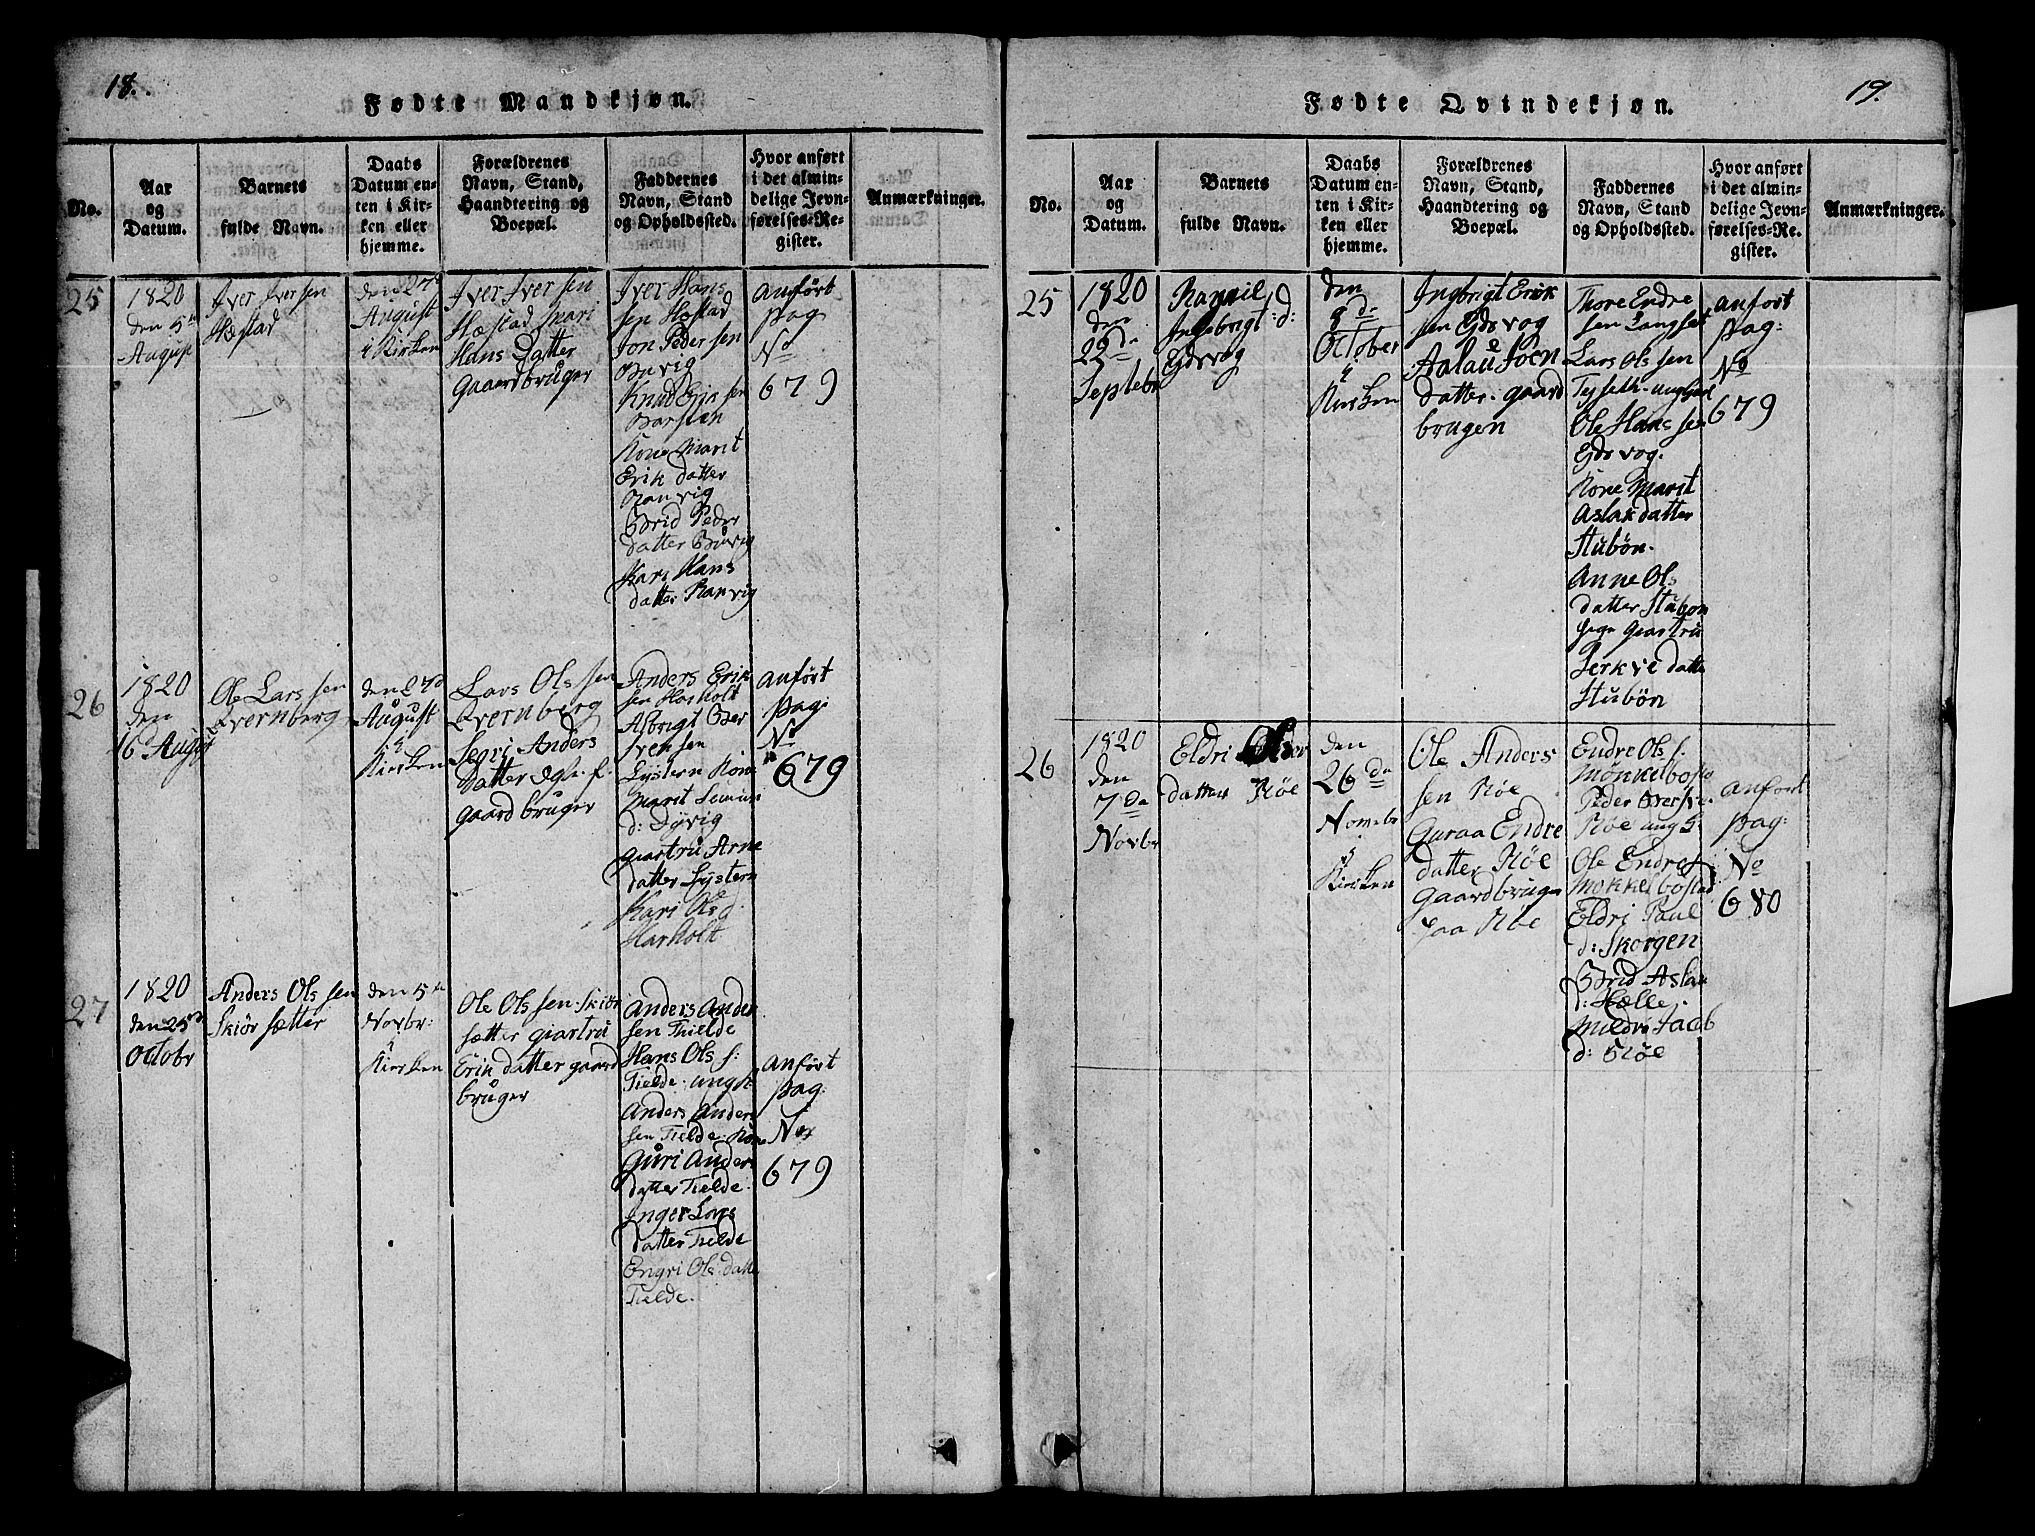 18.
Fødte Mandkjøn.
No.
Aar
og
Datum.
Barnets
fulde Navn.
Daabs
Datum en-
ten i Kir-
ken eller
hjemme.
Forældrenes
Navn, Stand,
Haandtering og
Boepæl.
Faddernes
Navn, Stand
og Opholdssted.
Hvor anført
i det almin-
delige Jevn-
førelses-Re-
gister.
Anmærkninger.
25
1820
den 5te
August
Iver Iver sen
Hæstad
den 27de
August
i Kirken
Iver Iver sen
Hæstad Kari
Hans Datter
gaardbruger
Iver Hans
sen Hæstad
Jon Peder sen
Buvig
Knud Erik sen
Barsten
Kone Marit
Erik datter
Ranvig
Brid Peder
datter Buvig
Kari Hans
datter Ranvig
anført
pag
No
679
26
1820
den
16 August
Ole Lars sen
Qvernberg
den 27de
August
i
Kirken
Lars Ols sen
Qvernberg
Segri Anders
datter
gaardbruger
Anders Erik
sen Harholt
Asbrigt Ber
Iversen
Lystern Kone
Marit
d: Dyvig
giartru Arne
datter Lystern
Kari Ols d:
Harholt
anført
pag:
No
679
27
1820
den 25de
octobr
Anders Ols sen
Skiør sætter
den 5te
Novbr:
i
Kirken
Ole Ols sen Skiør
sætter giartru
Erik datter gaard
bruger
Anders Ander
sen Tielde
Hans Ols s:
Tielde ungk
Anders Anders
sen Tielde Kone
Guri Anders
datter Tielde
Inger Lars
datter Tielde
Engri Ols datter
Tielde.
anført
pag:
No
679
19.
Fødte Qvindekjøn.
No.
Aar
og
Datum.
Barnets
fulde Navn.
Daabs
Datum en-
ten i Kir-
ken eller
hjemme.
Forældrenes
Navn, Stand,
Haandtering og
Boepæl.
Faddernes
Navn, Stand
og Opholdssted.
Hvor anført
i det almin-
delige Jevn-
førelses-Re-
gister.
Anmærkninger.
25
1820
den
22de
Septebr
Ingebrigt :d:
Eidsvog
den
9de
October
i
Kirken
Ingbrigt Erik
sen Eidsvog
Aslau Joen
datter gaard
brugen
Thore Endre
sen Langset
Lars Ols sen
Tysseth ungkarl
Ole Hans sen
Eidsvog.
Kone Marit
Aslak datter
Stubøn.
Anne Ols
datter Stubøn
Pige giartru
Jerkve datter
Stubøn
anført
pag:
No
679
26
1820
den
7de
Novbr
Eldri Ols
datter Røe
den
26de
Novebr
i
Kirken
Ole Anders
sen Røe
Guraa Endre
datter Røe
gaardbruger
paa Røe
Endre Ols s:
Mønkelbostad
Peder
Røe ung s:
Ole Endre s
Mokkelbostad
Eldri Paul
d: Skorgen
Brid Aslak
d: Hælle.
Mildri Jacob
d: Røe
anført
pag:
No
680